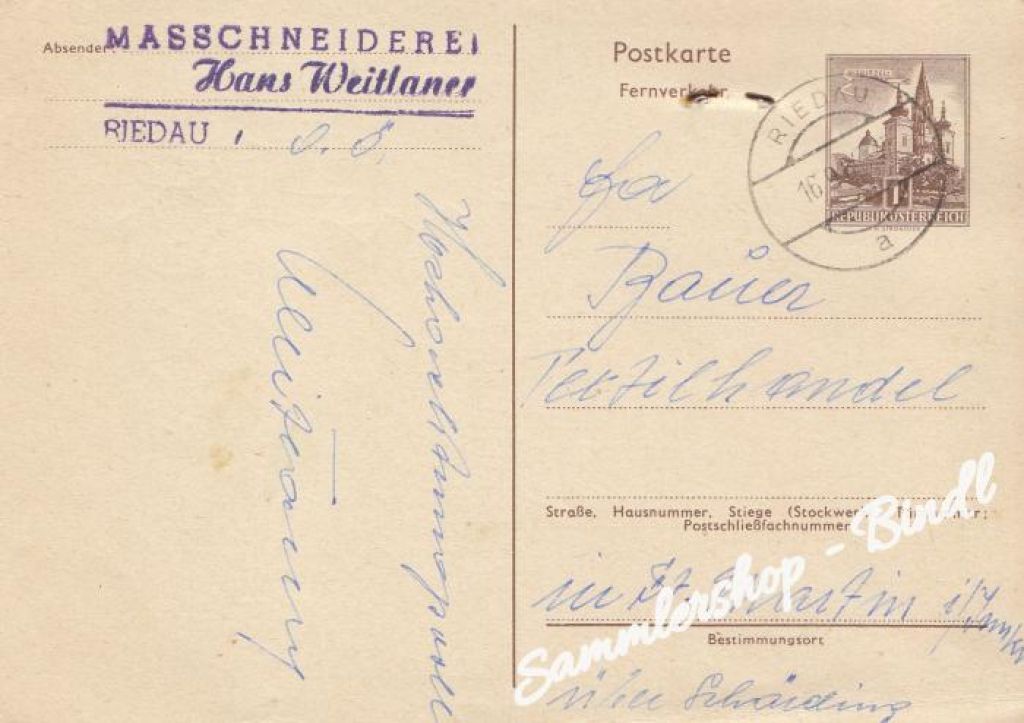 Absender:
MASSCHNEIDEREI
Hans Weitlaner
RIEDAU, O. Ö.
Hochachtungsvoll
Postkarte
Fernverkehr
RIEDAU
16.
a
1
REPUBLIK ÖSTERREICH
Fa
Bauer
Textilhandel
Straße, Hausnummer, Stiege (Stockwerk), Türnummer;
Postschließfachnummer
in St. Martin i/Innkr
Bestimmungsort
über Schärding
Sammlershop - Bindl